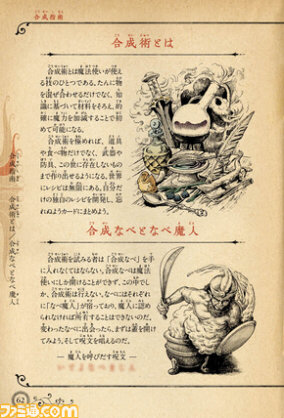 合成指南
合成術とは
合成術とは魔法使いが使え
る技のひとつである。たんに物
を混ぜ合わせるだけでなく、知
識に基づいて材料をそろえ、的
確に魔力を加減することで初
めて可能になる。
合成術を極めれば、道具
や食べ物だけでなく、武器や
防具、この世に存在しないもの
まで作り出せるようになる。世界
にレシピは無限にある。自分だ
けの独自のレシピを開発し、忘
れぬようカードにまとめよう。
合成なべとなべ魔人
合成術を試みる者は「合成なべ」を手
に入れなくてはならない。合成なべは魔法
使いにしか開けることができず、この中でし
か、合成術は行えない。なべにはそれぞれ
に「なべ魔人」が宿っており、魔人に認め
られなければ所有することはできないのだ。
変わったなべに出会ったら、まずは蓋を開け
てみよう。そして呪文を唱えるのだ。
― 魔人を呼びだす呪文 ―
合成指南 合成術とは/合成なべとなべ魔人
62
ファミ通.com